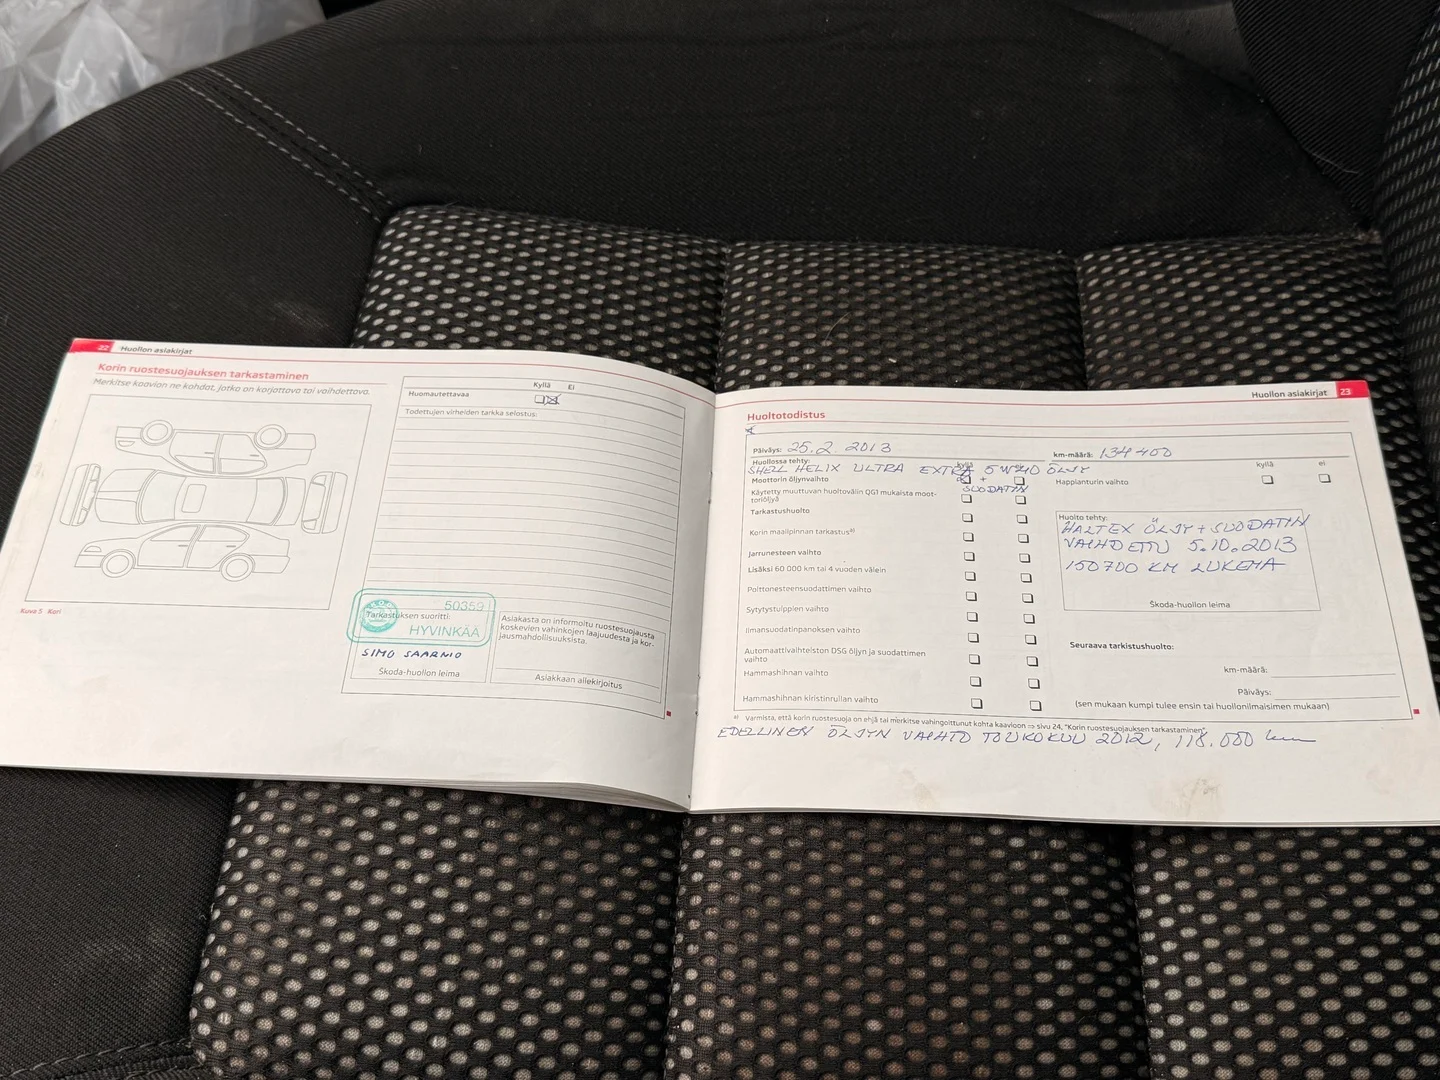 22 Huollon asiakirjat
Korin ruostesuojauksen tarkastaminen
Merkitse kaavion ne kohdat, jotka on korjattava tai vaihdettava.
Kuva 5 Kori
Kyllä Ei
Huomautettavaa
Todettujen virheiden tarkka selostus:
50359
Tarkastuksen suoritti:
HYVINKÄÄ
SIMO SAARNIO
Skoda-huollon leima
Asiakasta on informoitu ruostesuojausta
koskevien vahinkojen laajuudesta ja kor-
jausmahdollisuuksista.
Asiakkaan allekirjoitus
Huollon asiakirjat 23
Huoltotodistus
Päiväys: 25.2 2013
km-määrä: 134 400
Huollossa tehty:
kyllä
SHELL HELIX ULTRA EXTRA 5W30 ÖLJY
Moottorin öljynvaihto +
SUODATIN
Käytetty muuttuvan huoltovälin QG1 mukaista moot-
toriöljyä
Tarkastushuolto
Korin maalipinnan tarkastus a)
Jarrunesteen vaihto
Lisäksi 60 000 km tai 4 vuoden välein
Polttonesteensuodattimen vaihto
Sytytystulppien vaihto
Ilmansuodatinpanoksen vaihto
Automaattivaihteiston DSG öljyn ja suodattimen
vaihto
Hammashihnan vaihto
Hammashihnan kiristinrullan vaihto
kyllä ei
Happianturin vaihto
Huolto tehty:
HALTEX ÖLJY + SUODATIN
VAIHDETTU 5.10.2013
150700 KM LUKEMA
Škoda-huollon leima
Seuraava tarkistushuolto:
km-määrä:
Päiväys:
(sen mukaan kumpi tulee ensin tai huollonilmaisimen mukaan)
a) Varmista, että korin ruostesuoja on ehjä tai merkitse vahingoittunut kohta kaavioon ⇒ sivu 24, "Korin ruostesuojauksen tarkastaminen"
EDELLINEN ÖLJYN VAIHTO TOUKOKUU 2012, 118.000 km